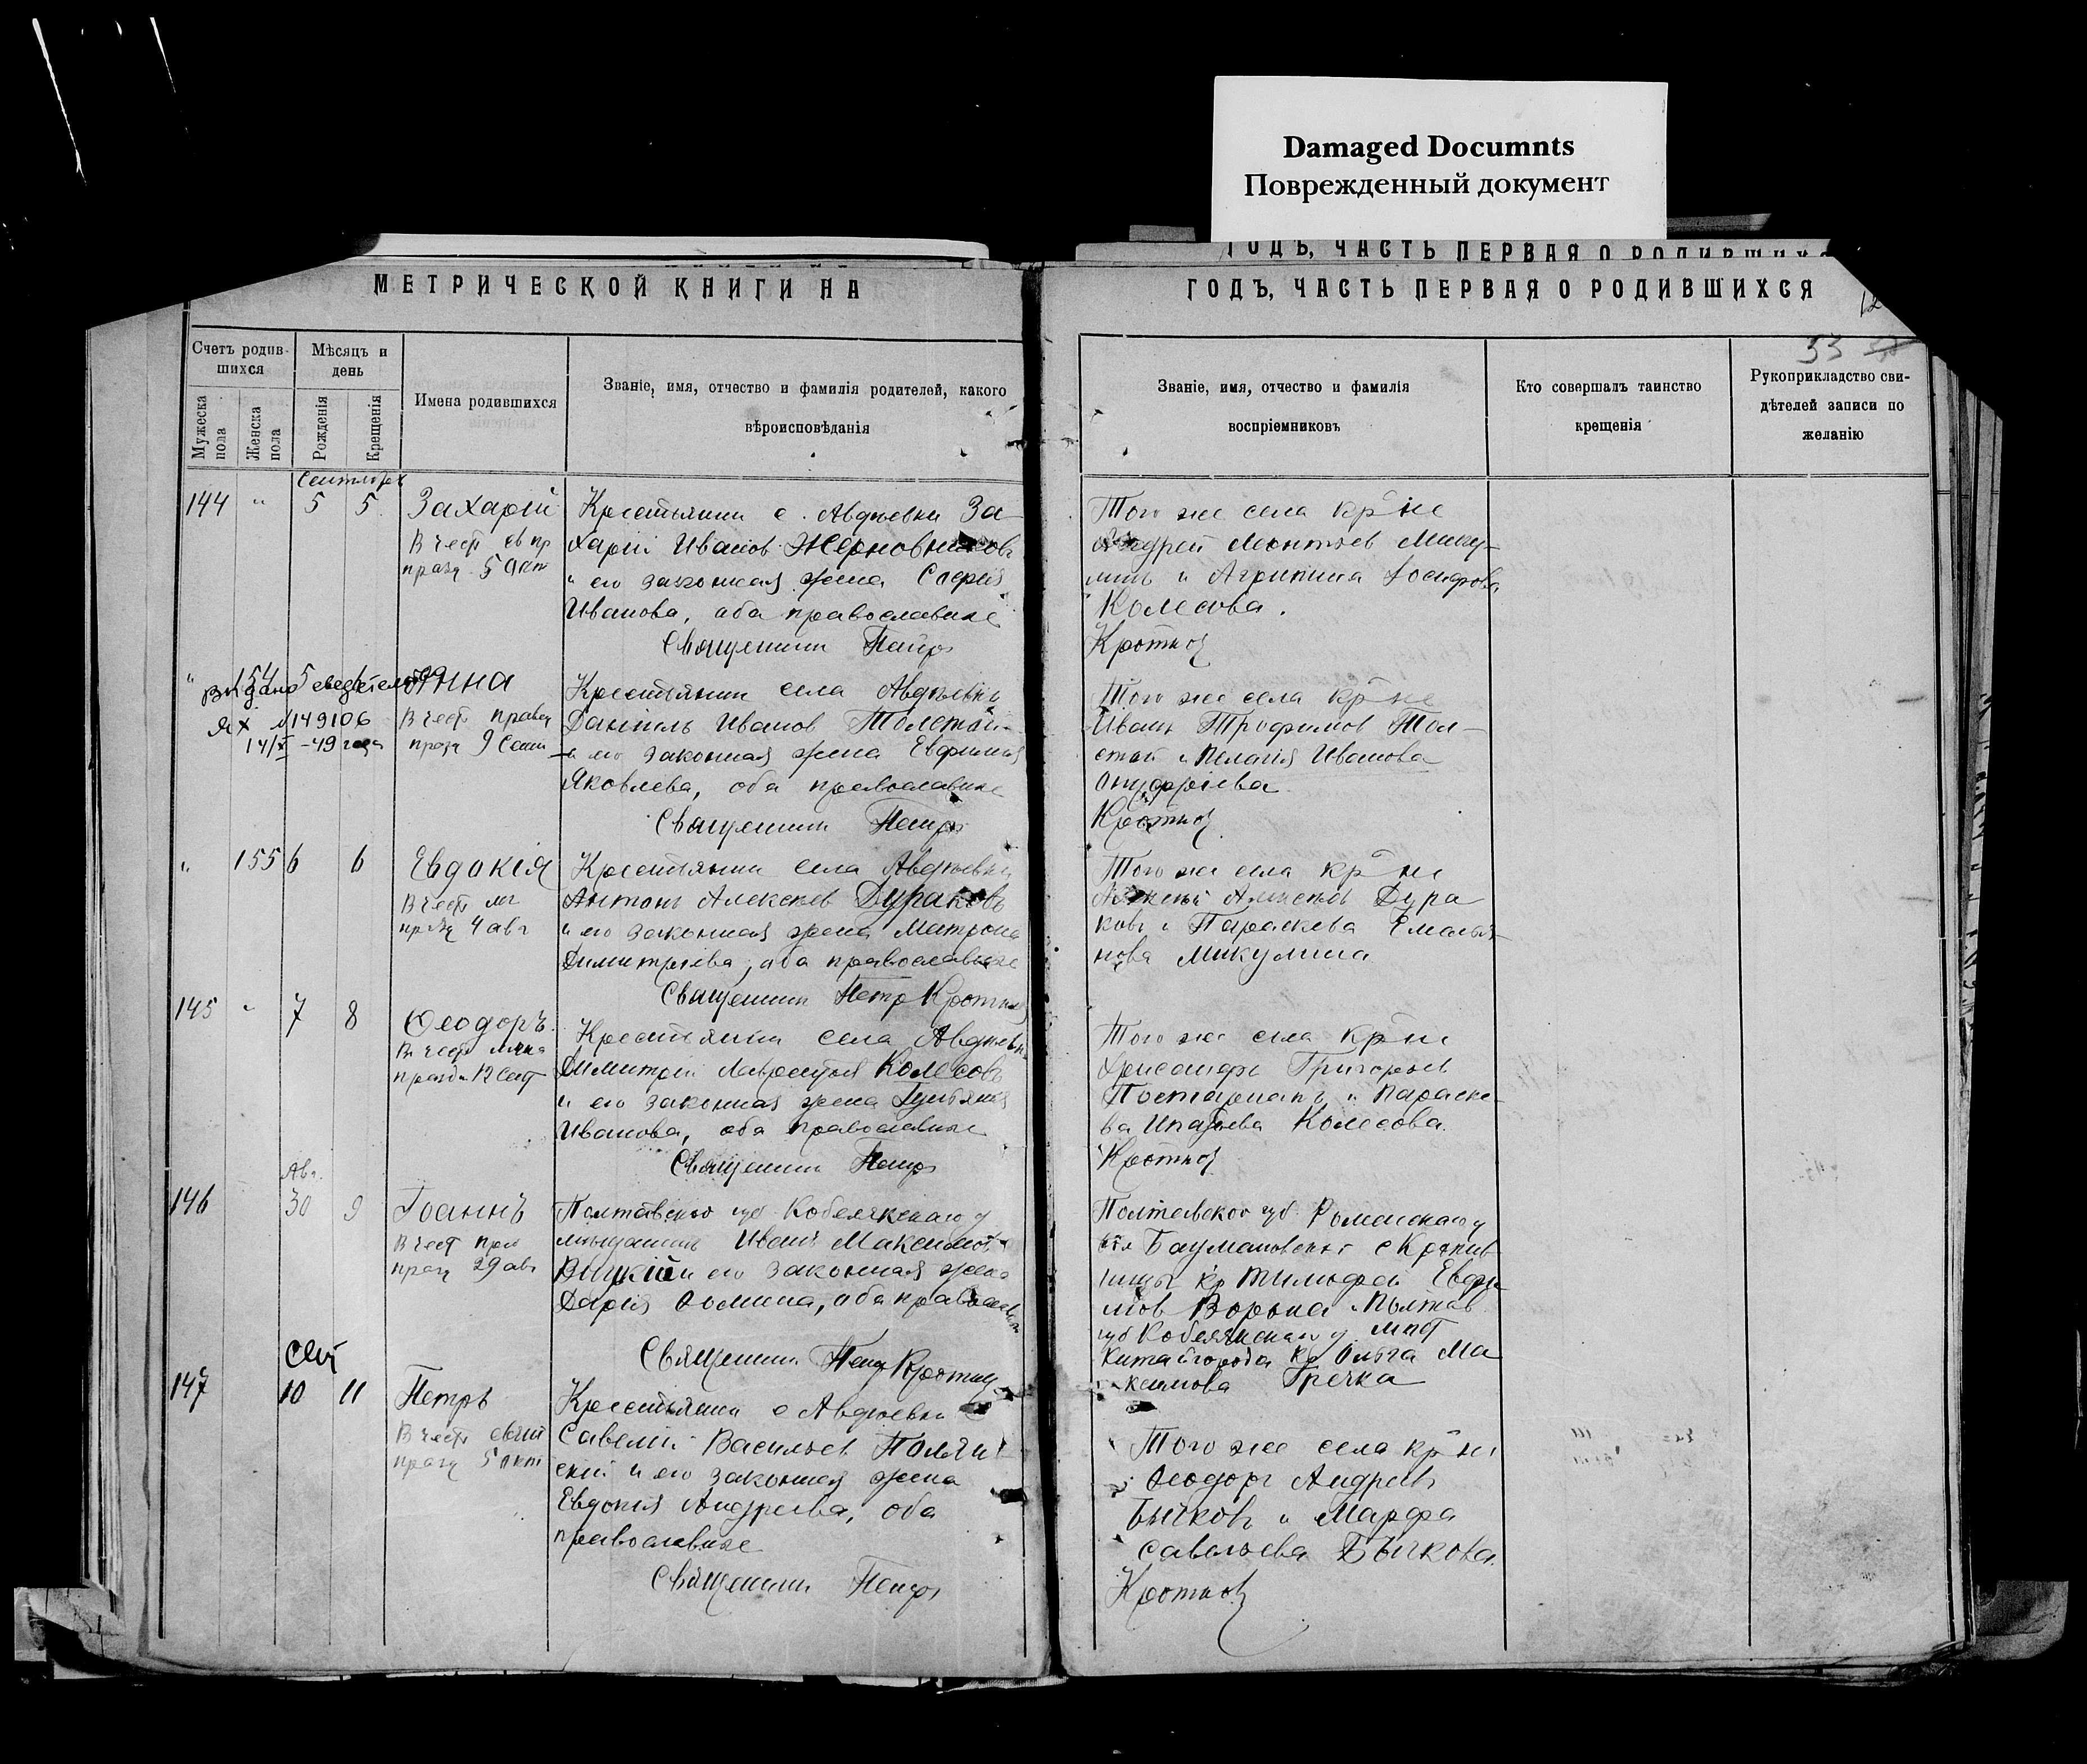 Damaged Documnts
Поврежденный документ
ГОДЪ, ЧАСТЬ ПЕРВАЯ О РОДИВШИХС
МЕТРИЧЕСКОЙ КНИГИ НА
ГОДЪ, ЧАСТЬ ПЕРВАЯ О РОДИВШИХСЯ
53
Счетъ родив-
шихся
Мужеска пола
Женска пола
Мѣсяцъ и
день
Рожденія
Крещенія
Имена родившихся
Званіе, имя, отчество и фамилія родителей, какого
вѣроисповѣданія
Званіе, имя, отчество и фамилія
воспріемниковъ
Кто совершалъ таинство
крещенія
Рукоприкладство сви-
дѣтелей записи по
желанію
Сентябрь
144 " 5 5 Захарій
В чест св пр
празд 5
Крестьянин с. Авдѣевки За
харій Иванов Жерновников
и его законная жена Софія
Иванова, оба православные
Священник Петр
Того же села кр не
Андрей Леонтьев Мику-
лин и Агрипина Іосифова
Колесова.
Кротков
" 154 5 Анна
Выдано свидетельство
ЯХ №149106
14/X -49 года
В чест правед
празд 9 Сент
Крестьянин села Авдѣевки
Даніилъ Иванов Толстой
и его законная жена Евфимія
Яковлева, оба православные
Священник Петр
Того же села кр не
Иванъ Трофимов Тол-
стой и Пелагія Иванова
Онуфріева
Кротков
" 155 6 6 Евдокія
В чест мч
празд 4 авг
Крестьянин села Авдѣевки
Антонъ Алексѣев Дураковъ
и его законная жена Матрона
Димитріева, оба православные
Священник Петр Кротков
Того же села кр не
Алексѣй Алексѣев Дура
ковъ и Параскева Емелья-
нова Микулина
145 " 7 8 Ѳеодоръ
В чест
празд 12 Сент
Крестьянин села Авдѣевки
Димитрій Лаврентьев Колесовъ
и его законная жена
Иванова, оба православные
Священник Петр
Того же села кр не
Хрисанфъ Григорьев
и Параске-
ва Колесова.
Кротков
Авг.
146 30 9 Іоаннъ
В чест
празд 29 авг
Полтавской губ Кобелякскаго у
мѣщанинъ Иванъ Максимов
и его законная жена
Дарія Ѳомина, оба православн
Священник Петр Кротков
Полтавской губ Роменскаго у
с
кр Тимофей Евфи
мов Ворона и Полтав.
губ Кобелякскаго у
Китайгорода кр Ольга Ма
ксимова Гречка
Сент
147 10 11 Петръ
В чест свят
празд 5 окт
Крестьянин с Авдѣевки
Савелій Васильев
и его законная жена
Евдокія Андреева, оба
православные
Священник Петр
Того же села кр не
Ѳеодоръ Андреев
Бычковъ и Марфа
Савельева Бычкова.
Кротков